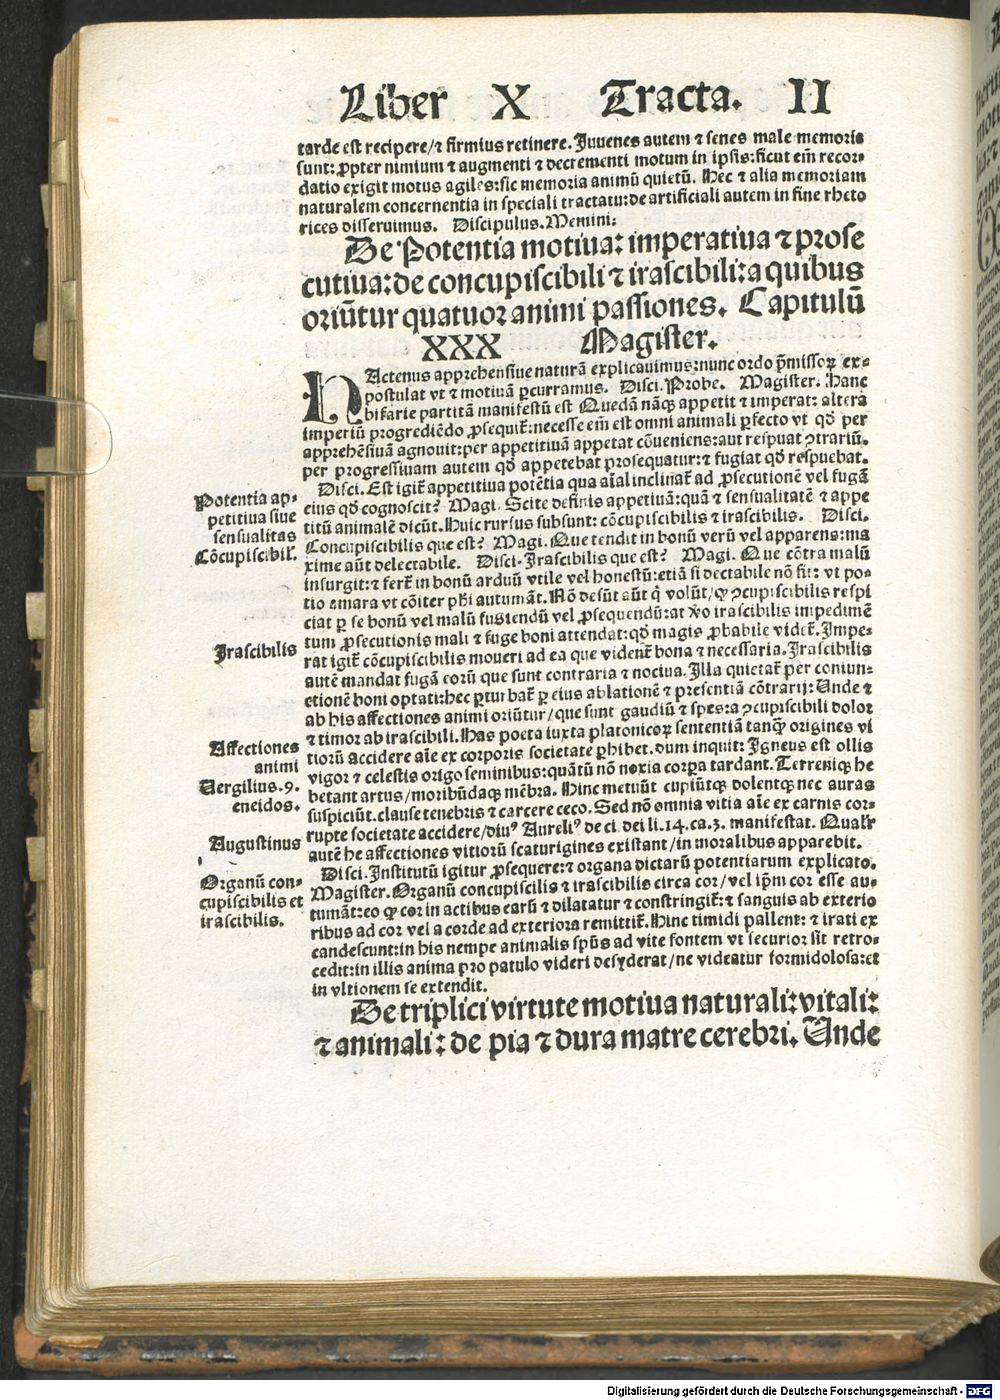 Liber X Tracta. II
tarde est recipere/⁊ firmius retinere. Iuuenes autem ⁊ senes male memorie
sunt: ꝓpter nimium ⁊ augmenti ⁊ decrementi motum in ipsis: sicut em̄ recor⸗
datio exigit motus agiles: sic memoria animū quietū. Hec ⁊ alia memoriam
naturalem concernentia in speciali tractatu: de artificiali autem in fine rheto
rices disseruimus. Discipulus. Memini:
De Potentia motiua: imperatiua ⁊ prose
cutiua: de concupiscibili ⁊ irascibili: a quibus
oriūtur quatuor animi passiones. Capitulū
XXX Magister.
HActenus apprehensiue naturā explicauimus: nunc ordo p̄missoꝝ ex⸗
postulat vt ⁊ motiuā ꝑcurramus. Disci. Probe. Magister. Hanc
bifarie partitā manifestū est Quedā nāqꝫ appetit ⁊ imperat: altera
imperiū progrediēdo ꝓsequit᷑: necesse em̄ est omni animali ꝑfecto vt qd̄ per
apprehēsiuā agnouit: per appetitiuā appetat cōueniens: aut respuat ꝯtrariū.
per progressiuam autem qd̄ appetebat prosequatur: ⁊ fugiat qd̄ respuebat.
Disci. Est igit᷑ appetitiua potētia qua aīal inclinat᷑ ad ꝓsecutionē vel fugā
eius qd̄ cognoscit? Magi. Scite definis appetiuā: quā ⁊ sensualitatē ⁊ appe
titū animalē dicūt. Huic rursus subsunt: cōcupiscibilis ⁊ irascibilis. Disci.
Concupiscibilis que est? Magi. Que tendit in bonū verū vel apparens: ma
xime aūt delectabile. Disci. Irascibilis que est? Magi. Que cōtra malū
insurgit: ⁊ fert᷑ in bonū arduū vtile vel honestū: etiā si dectabile nō sit: vt po⸗
tio amara vt cōiter phi autumāt. Nō desūt aūt q̄ volūt/ꝙ ꝯcupiscibilis respi
ciat ꝑ se bonū vel malū fugiendū vel ꝓsequendū: at ꝟo irascibilis impedimē
tum ꝓsecutionis mali ⁊ fuge boni attendat: qd̄ magis ꝓbabile videt᷑. Impe⸗
rat igit᷑ cōcupiscibilis moueri ad ea que vident᷑ bona ⁊ necessaria. Irascibilis
autē mandat fugā eorū que sunt contraria ⁊ nociua. Illa quietat᷑ per coniun⸗
ctionē boni optati: hec ꝑturbat᷑ ꝑ eius ablationē ⁊ presentiā cōtrarij: Unde ⁊
ab his affectiones animi oriūtur/que sunt gaudiū ⁊ spes: a ꝯcupiscibili dolor
⁊ timor ab irascibili. Has poeta iuxta platonicoꝝ sententiā tanqꝫ origines vi
tiorū accidere aīe ex corporis societate ꝑhibet. dum inquit: Igneus est ollis
vigor ⁊ celestis origo seminibus: quātū nō noxia corꝑa tardant. Terreniqꝫ he
betant artus/moribūdaqꝫ mēbra. Hinc metuūt cupiūtqꝫ dolentqꝫ nec auras
suspiciūt. clause tenebris ⁊ carcere ceco. Sed nō omnia vitia aīe ex carnis cor⸗
rupte societate accidere/diuꝰ Aureliꝰ de ci. dei li. 14. ca. 3. manifestat. Qualr̄
autē he affectiones vitiorū scaturigines existant/in moralibus apparebit.
Disci. Institutū igitur ꝓsequere: ⁊ organa dictarū potentiarum explicato.
Magister. Organū concupiscilis ⁊ irascibilis circa cor/vel ip̄m cor esse au⸗
tumāt: eo ꝙ cor in actibus earū ⁊ dilatatur ⁊ constringit᷑: ⁊ sanguis ab exterio
ribus ad cor vel a corde ad exteriora remittit᷑. Hinc timidi pallent: ⁊ irati ex
candescunt: in his nempe animalis spūs ad vite fontem vt securior sit retro⸗
cedit: in illis anima pro patulo videri desyderat/ne videatur formidolosa: et
in vltionem se extendit.
De triplici virtute motiua naturali: vitali:
⁊ animali: de pia ⁊ dura matre cerebri. Unde
Potentia ap⸗
petitiua siue
sensualitas
Cōcupiscibil᷑.
Irascibilis
Affectiones
animi
Uergilius. 9.
eneidos.
Augustinus
Organū con⸗
cupiscibilis et
irascibilis.
Digitalisierung gefördert durch die Deutsche Forschungsgemeinschaft - DFG